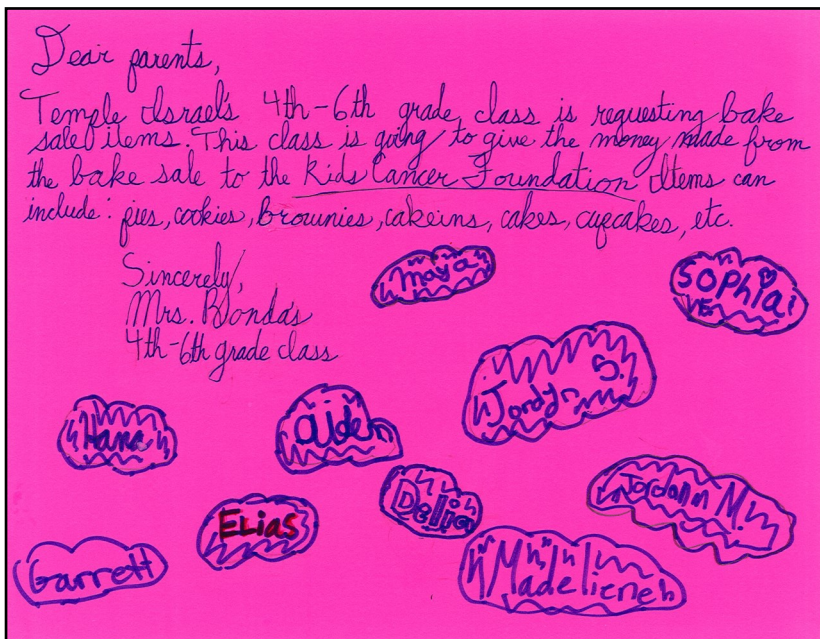 Dear parents,
Temple Israel's 4th-6th grade class is requesting bake
sale items. This class is going to give the money made from
the bake sale to the Kids Cancer Foundation Items can
include: pies, cookies, brownies, cakeins, cakes, cupcakes, etc.
Sincerely,
Mrs. Blonda's
4th-6th grade class
Maya
Sophia
Jordyn S.
Hana
Aiden
Delia
Jordann M.
Elias
Garrett
Madeliene